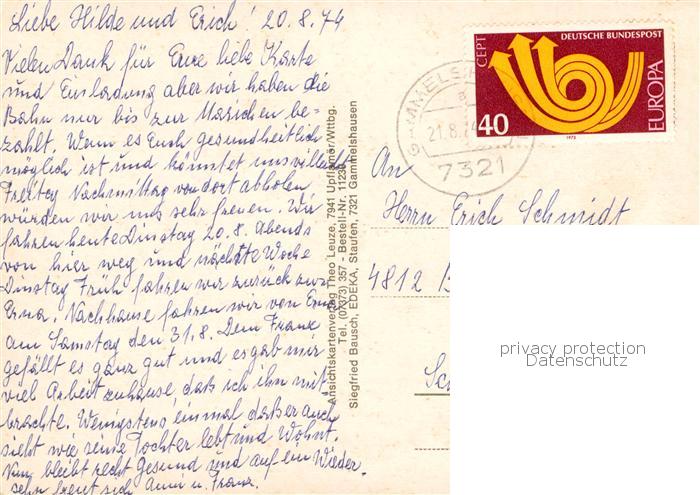 Liebe Hilde und Erich! 20.8.74
Vielen Dank für Eure liebe Karte
und Einladung aber wir haben die
Bahn nur bis zur Mariechen be-
zahlt. Wenn es Euch gesundheitlich
möglich ist und könntet uns vielleicht
Freitag Nachmittag von dort abholen
würden wir uns sehr freuen. Wir
fahren heute Dinstag 20.8. Abends
von hier weg und nächste Woche
Dinstag Früh fahren wir zurück zur
Erna. Nachhause fahren wir von Erna
am Samstag den 31.8. Dem Franz
gefällt es ganz gut und es gab mir
viel Arbeit zuhause, daß ich ihn mit
brachte. Wenigstens einmal daß er auch
sieht wie seine Tochter lebt und Wohnt.
Nun bleibt recht Gesund und auf ein Wieder-
sehn freut sich Anni u. Franz.
Ansichtskartenverlag Theo Leuze, 7941 Upflamör/Wttbg.
Tel. (07373) 357 - Bestell-Nr. 11230
Siegfried Bausch, EDEKA, Staufen, 7321 Gammelshausen
CEPT
DEUTSCHE BUNDESPOST
EUROPA
40
1973
GAMMELS
21.8.74
7321
An
Herrn Erich Schmidt
4812 B
privacy protection
Datenschutz